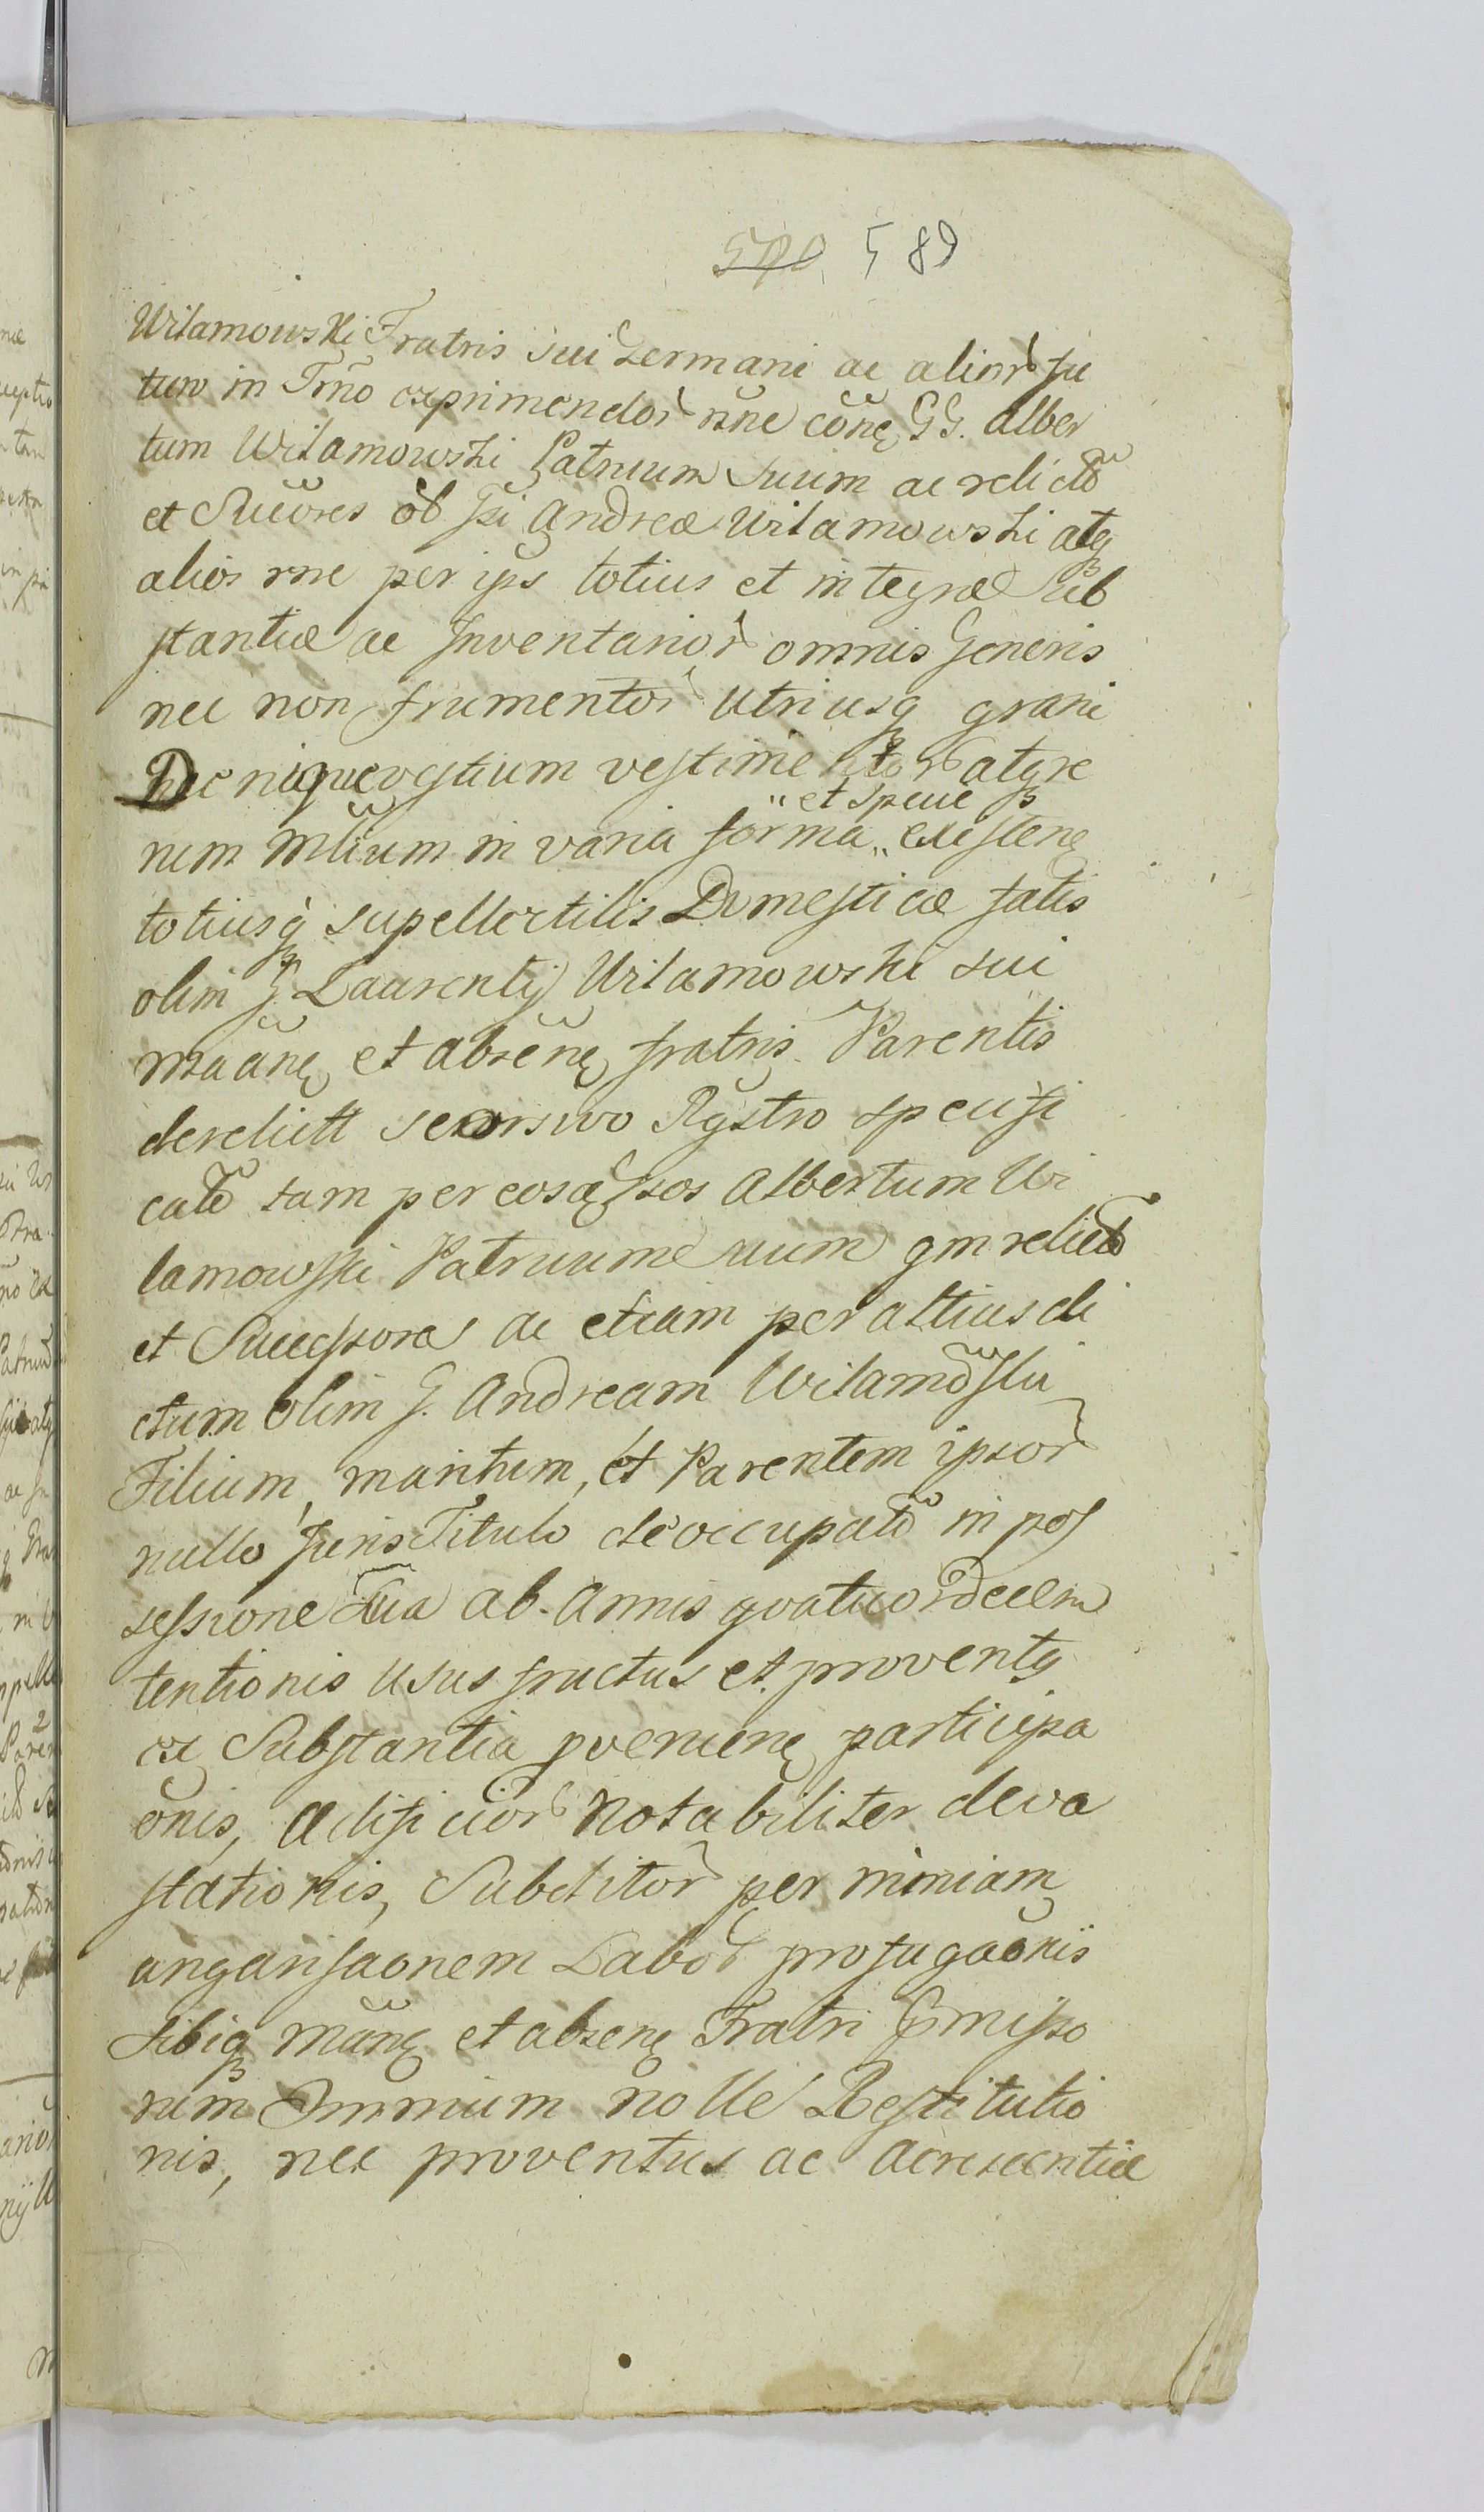 570 589
Wilamowski Fratris sui Germani ac alior fu
turo in Tmno exprimendor rne cone GG. Alber
tum Wilamowski Patruum suum ac relictã
et Succres olỉ Gsi Andreæ Wilamowski atq
alios rne per ips totius et integræ Sub
stantiæ ac Inventarior omnis Generis
nec non frumentor utriusq grani
Denique vestium vestimentor atq re
rum mlium in varia forma et specie existene
totiusq supellectilis Domesticæ fatis
olim G. Laurentij Wilamowski sui
maane et absene fratris Parentis
derelictt seorsivo Rgstro specifi
cato tam per eosdē psos Albertum Wi
lamowski Patruum suum qm relictã
et Successores ac etiam per altius di
ctum olim G. Andream Wilamowski
Filium, maritum, et Parentem ipsor
nullo Juris Titulo deoccupatã in pos
sessione sua ab Annis quatuordecem
tentionis usus fructus et proventq
ex Substantia pveniene participa
onis, Ædificior notabiliter deva
stationis, Subditor per nimiam
angarisaonem Labor profugaonis
sibiq mane et absene Fratri Pmisso
rum Omnium nolle Restitutio
nis, nec proventus ac acrescentiæ